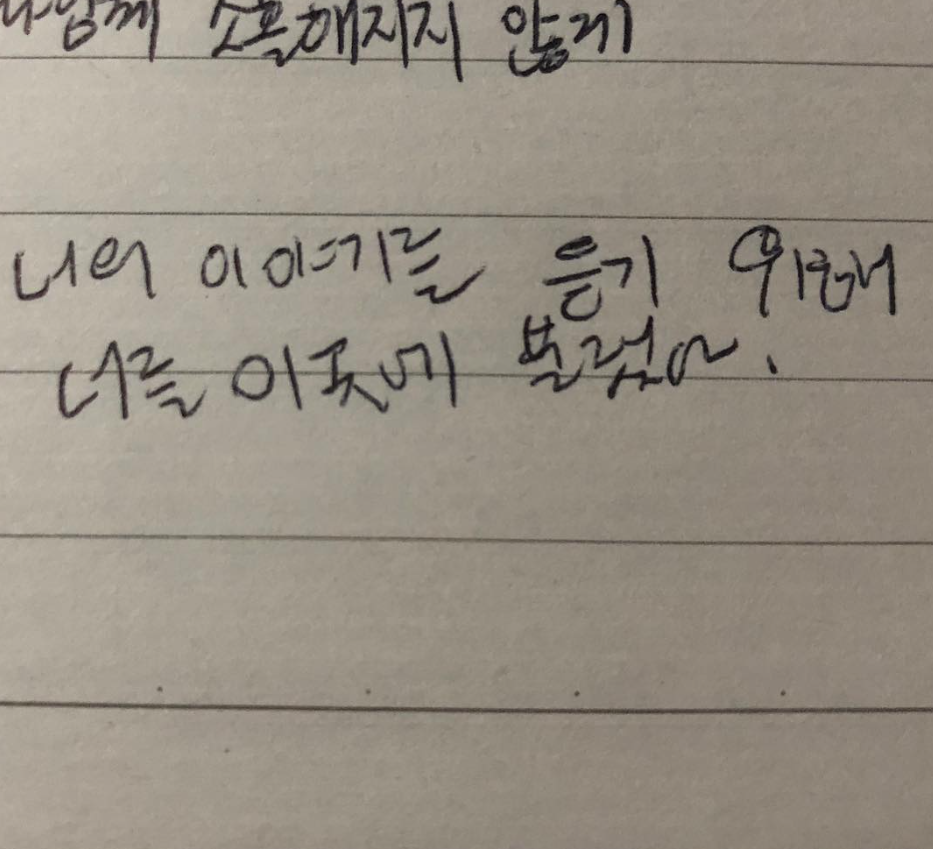 소홀해지지 않게
너의 이야기를 듣기 위해서
너를 이곳에 불렀어.